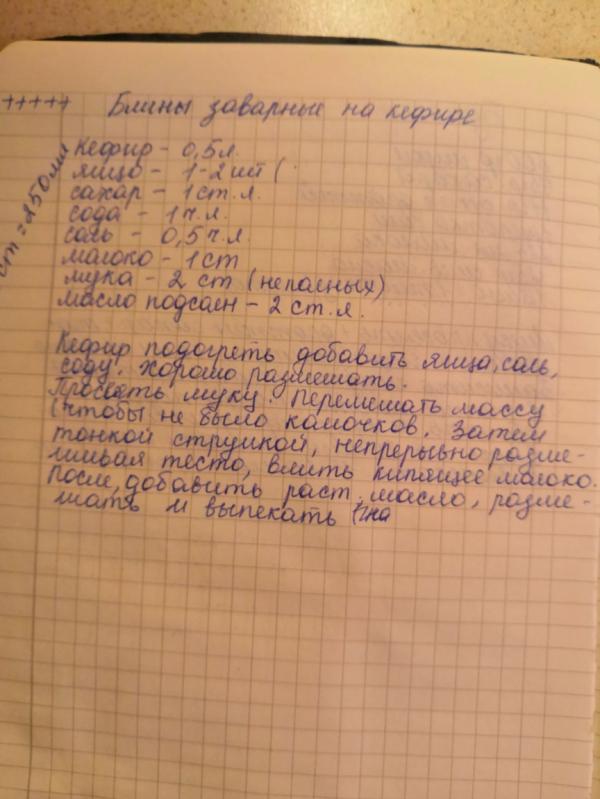 +++++ Блины заварные на кефире
ст = 250 мл
Кефир - 0,5 л.
яйцо - 1-2 шт (
сахар - 1 ст. л.
сода - 1 ч. л.
соль - 0,5 ч. л.
молоко - 1 ст
мука - 2 ст (неполных)
масло подсолн - 2 ст. л.
Кефир подогреть добавить яйца, соль,
соду. Хорошо размешать.
Просеять муку. Перемешать массу
(чтобы не было комочков. Затем
тонкой струйкой, непрерывно разме-
шивая тесто, влить кипящее молоко.
После, добавить раст. масло, разме-
шать и выпекать (на